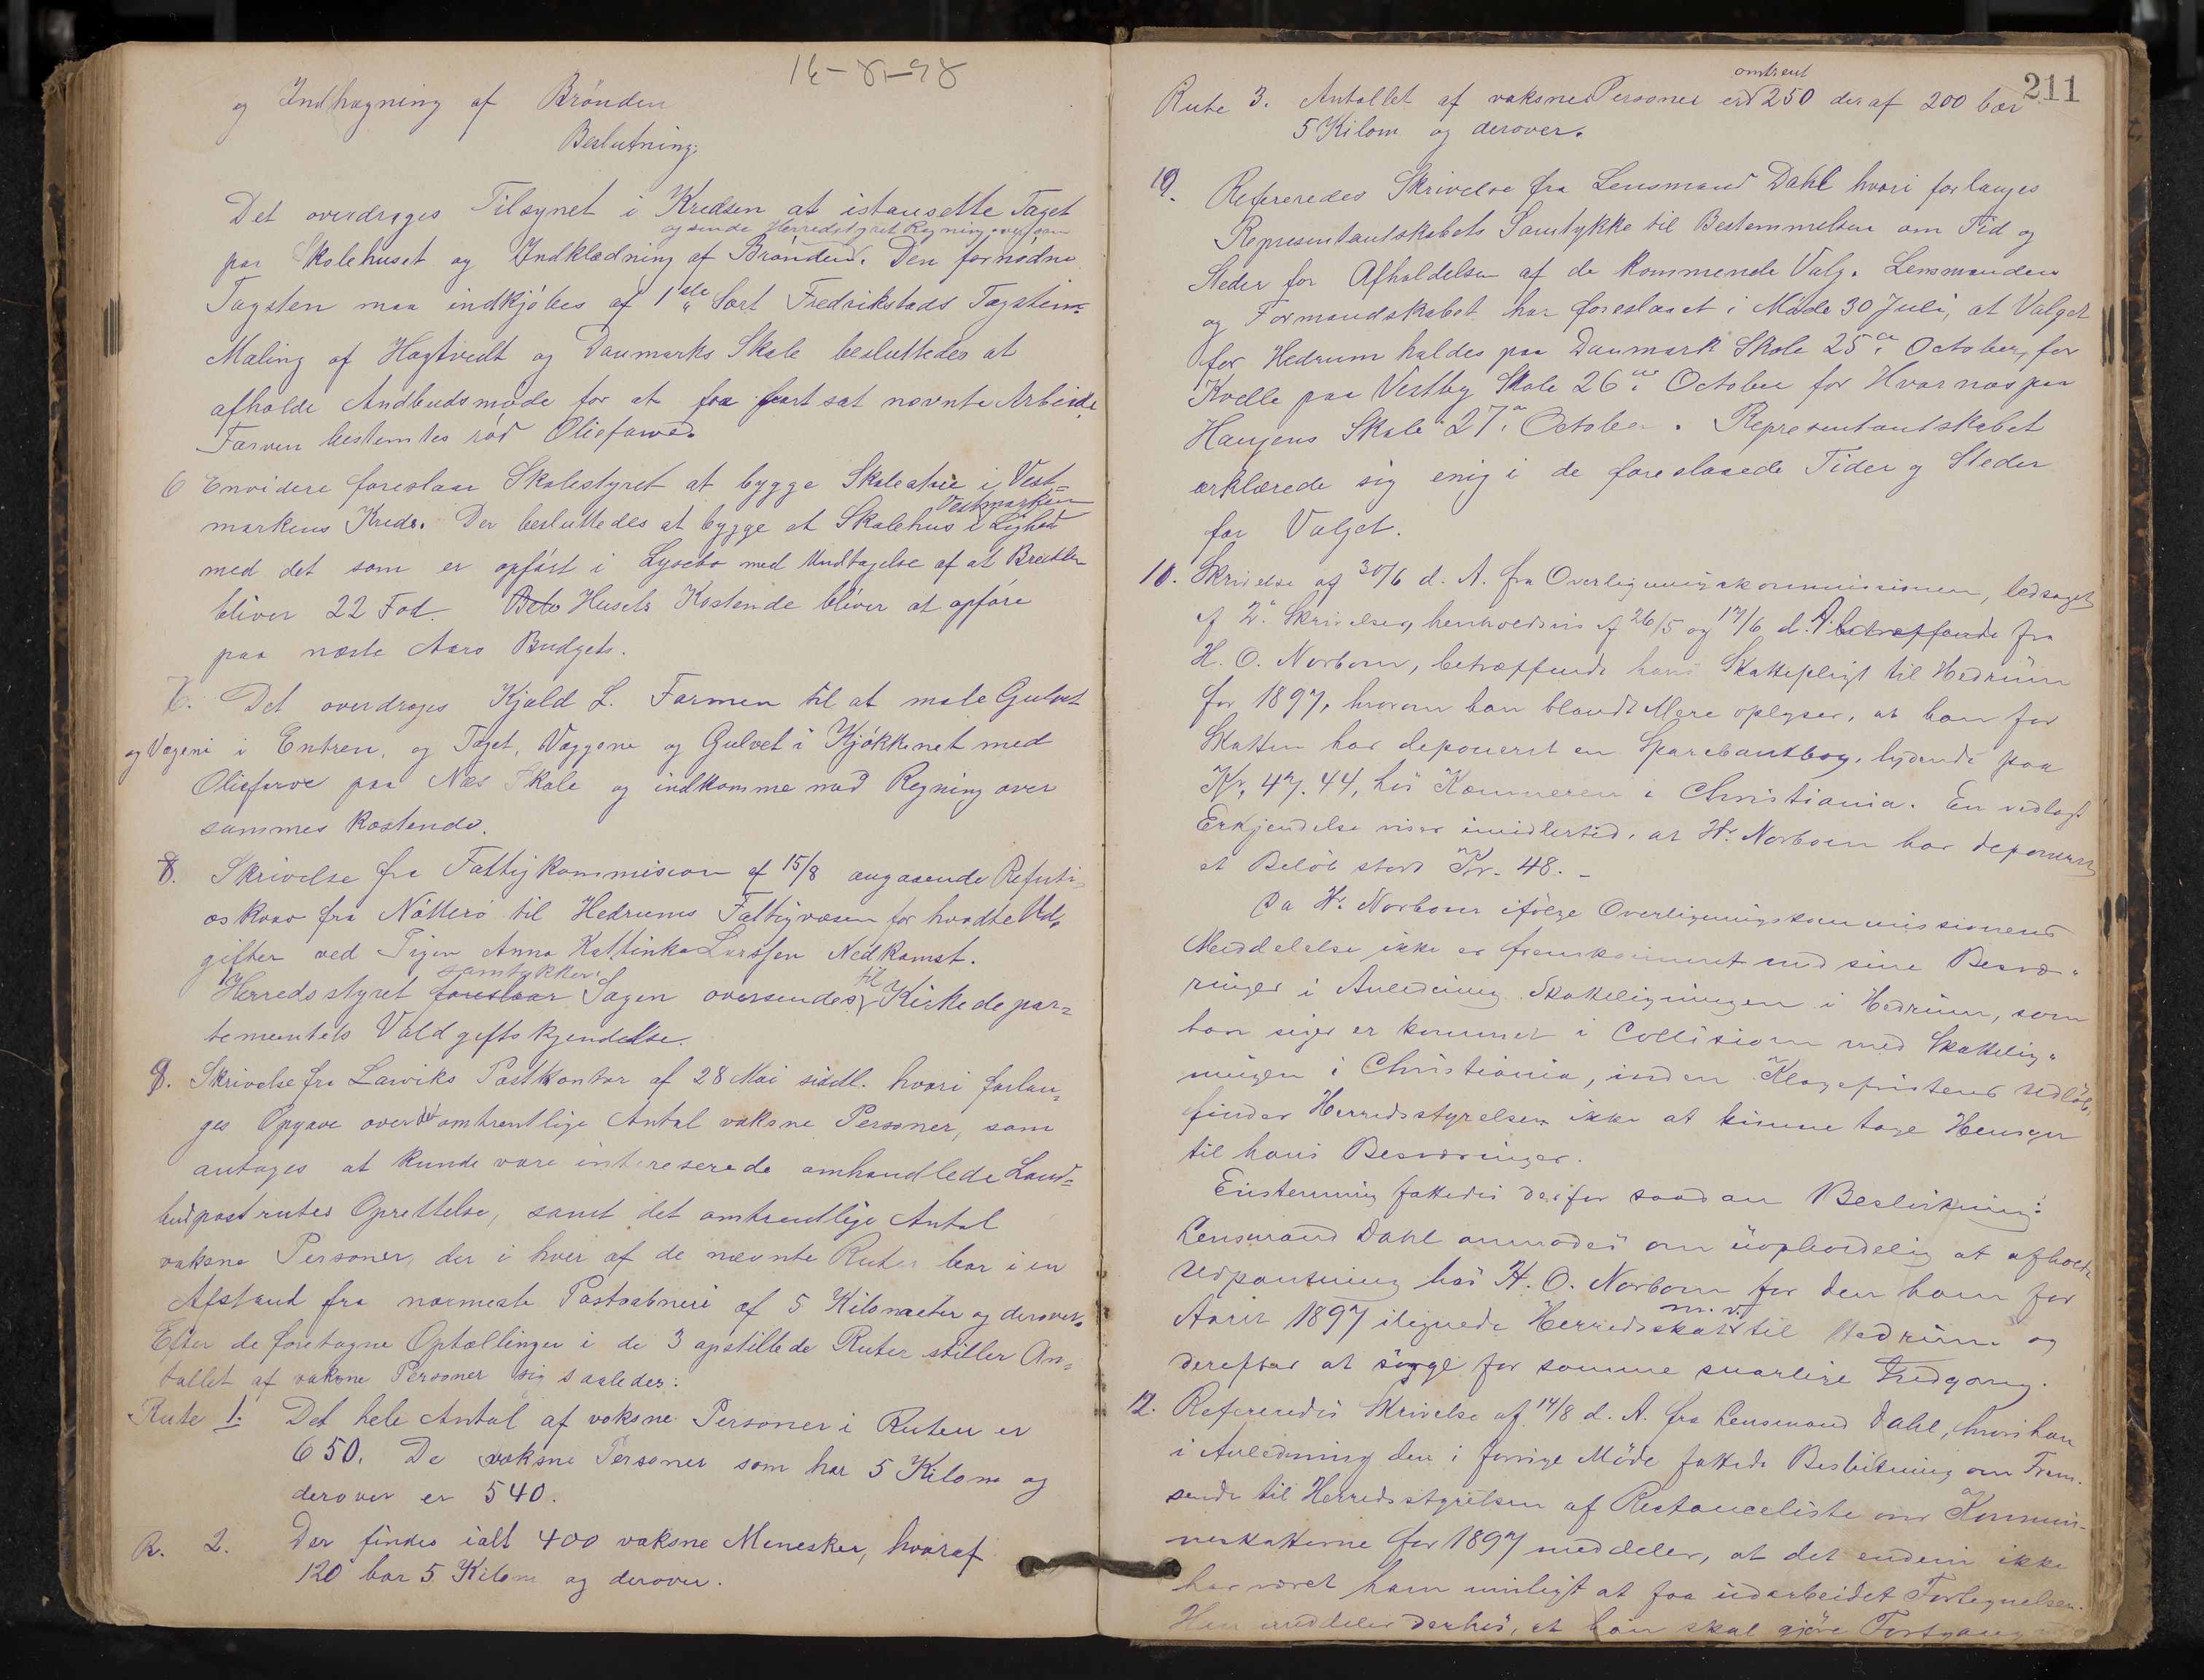 16-8-98
og Indhægning af Brønden
Beslutning:
Det overdrages Tilsynet i Kredsen at istansette Taget
og sende Herredstyret Regning
paa Skolehuset og Indklædning af Brønden. Den fornødne
Tagsten maa indkjøbes af 1ste Sort Fredrikstads Tagsten.
Maling af Hagtvedt og Danmarks Skole besluttedes at
afholde Andbudsmøde for at faa fort sat nævnte Arbeide
Farven bestemtes rød Oliefarve.
6 Envidere foreslaar Skolestyret at bygge Skole i Vest=
Vestmarken
markens Kreds. Der besluttedes at bygge et Skolehus i Lighed
med det som er opført i Lysebo med Undtagelse af at Bredden
bliver 22 Fod. Husets Kostende bliver at opføre
paa næste Aars Budget.
7. Det overdrages Kjøld L. Farmen til at male Gulvet
og Vægene i Entren, og Taget, Væggene og Gulvet i Kjøkkenet med
Oliefarve paa Nes Skole og indkomme med Regning over
sammes Kostende.
8. Skrivelse fra Fattigkommision af 15/8 angaaende Refusi-
onskrav fra Nøtterø til Hedrums Fattigvæsen for havdte Ud-
gifter ved Pigen Anna Kattinka Larssen Nedkomst.
samtykker til
Herredsstyret foreslaar Sagen oversendes Kirkedepar=
tementets Voldgiftskjendelse.
9. Skrivelse fra Larviks Postkontor af 28 Mai sidstl. hvori forlan=
ges Opgave over det omtrentlige Antal voksne Personer, som
antages at kunde være intereserede omhandlede Land=
budpostrutes Oprettelse, samt det omtrentlige Antal
voksne Personer, der i hver af de nævnte Ruter bor i en
Afstand fra nærmeste Postaabneri af 5 Kilometer og derover.
Efter de foretagne Optællinger i de 3 opstillede Ruter stiller An=
tallet af voksne Personer sig saaledes:
Rute 1. Det hele Antal af voksne Personer i Ruten er
650. De voksne Personer som har 5 Kilom og
derover er 540.
R. 2. Der findes ialt 400 voksne Menesker, hvoraf
120 bor 5 Kilom og derover.
211
omtrent
Rute 3. Antallet af voksne Personer er 250 deraf 200 bor
5 Kilom og derover.
10. Refereredes Skrivelse fra Lensmand Dahl hvori forlanges
Representantskabets Samtykke til Bestemmelsen om Tid og
Steder for Afholdelsen af de kommende Valg. Lensmanden
og Formandskabet har foreslaaet i Møde 30 Juli, at Valget
for Hedrum holdes paa Danmark Skole 25de October, for
Kvelle paa Vestby Skole 26de October for Hvarnes paa
Haugens Skole 27. October. Representantskabet
erklærede sig enig i de foreslaaede Tider og Steder
for Valget.
10. Skrivelse af 30/6 d. A. fra Overligningskommissionen, ledsaget
af 2 Skrivelser, henholdsvis af 26/5 og 17/6 d. A. betræffende fra
H. O. Norbom, betræffende hans Skattepligt til Hedrum
for 1897, hvorom han blandt Mere oplyser, at han for
Skatten har deponeret en Sparebankbog, lydende paa
Kr. 47.44, hos Kæmneren i Christiania. En vedlagt
Erkjendelse viser imidlertid, at Hr. Norbom har deponeret
et Beløb stort Kr. 48.-
Da Hr. Norbom ifølge Overligningskommissionens
Meddelelse ikke er fremkommet med sine Besvæ-
ringer i Anledning Skatteligningen i Hedrum, som
han siger er kommet i Collision med Skattelig-
ningen i Christiania, inden Klagefristens Udløb,
finder Herredsstyrelsen ikke at kunne tage Hensyn
til hans Besværinger.
Enstemmig fattedes derfor saadan Beslutning:
Lensmand Dahl anmodes om uopholdelig at afholde
Udpantning hos H. O. Norbom for den ham for
m. v.
Aaret 1897 ilignede Herredsskat til Hedrum og
derefter at sørge for samme snarlige Indgang.
12. Refereredes Skrivelse af 14/8 d. A. fra Lensmand Dahl, hvori han
i Anledning den i forrige Møde fattede Beslutning om Frem-
sende til Herredsstyrelsen af Restanceliste over Kommu-
neskatterne for 1897 meddeler, at det endnu ikke
har været ham muligt at faa udarbeidet Fortegnelsen.
Han meddeler derhos, at han skal gjøre Fortgang